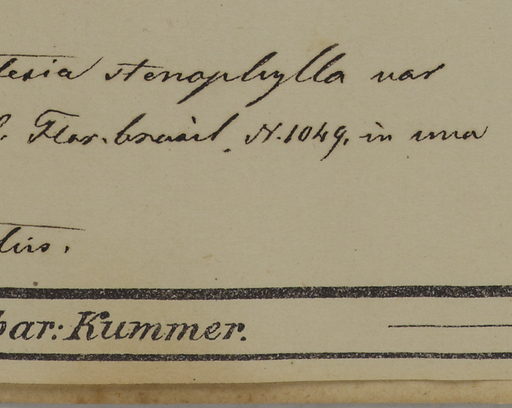 lesia stenophylla var
Flor. brasil. N. 1049. in una
lius.
bar: Kummer.